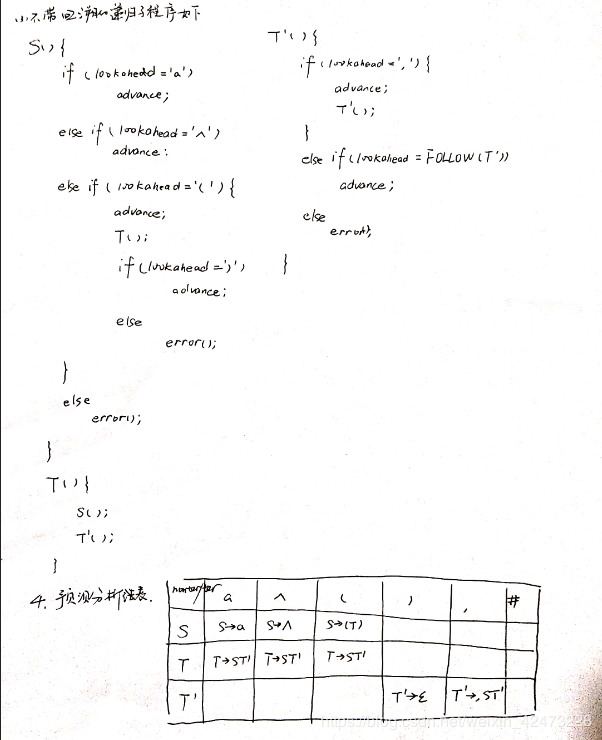 (1) 不带回溯的递归子程序如下
S() {
if (lookahead = 'a')
advance;
else if (lookahead = '∧')
advance:
else if (lookahead = '(') {
advance;
T();
if (lookahead = ')')
advance;
else
error();
}
else
error();
}
T() {
S();
T'();
}
T'() {
if (lookahead = ',') {
advance;
T'();
}
else if (lookahead = FOLLOW(T'))
advance;
else
error();
}
4. 预测分析表.
a ∧ ( ) , #
S S→a S→∧ S→(T)
T T→ST' T→ST' T→ST'
T' T'→ε T'→,ST'